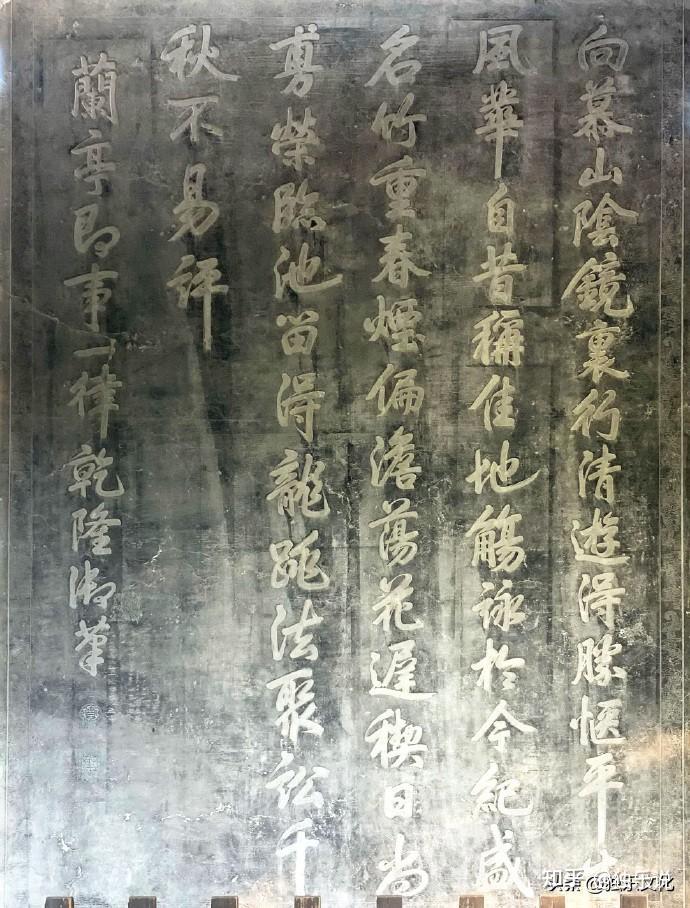 向暮山陰鏡裏行清遊得勝愜平生
風華自昔稱佳地觴詠於今紀盛
名竹重春煙偏澹蕩花遲禊日尚
勇榮臨池留得龍跳法聚訟千
秋不易評
蘭亭即事一律乾隆御筆
知乎
头条 @独乐文化